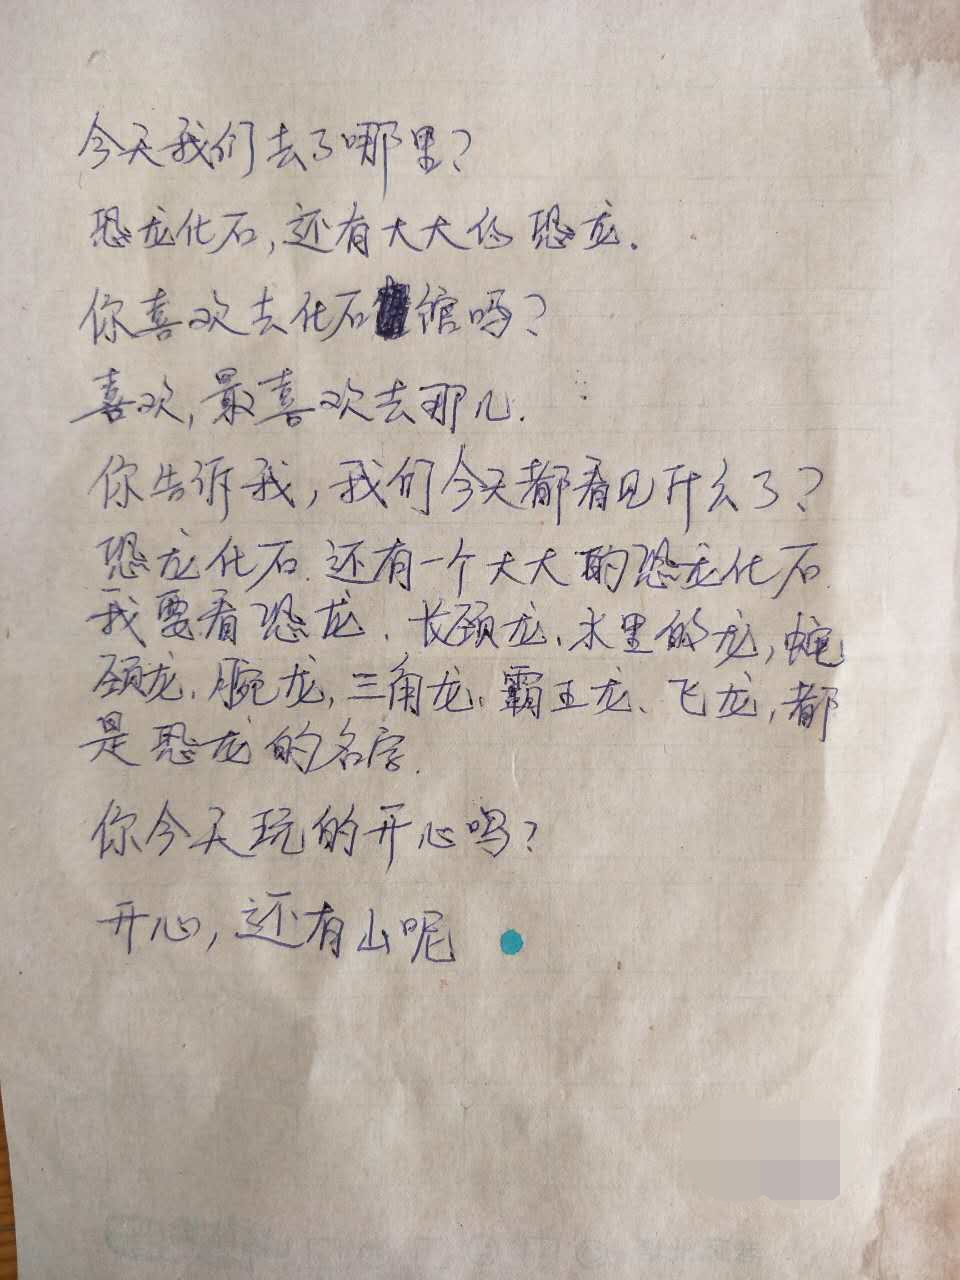 今天我们去了哪里？
恐龙化石，还有大大的恐龙.
你喜欢去化石馆吗？
喜欢，最喜欢去那儿.
你告诉我，我们今天都看见什么了？
恐龙化石.还有一个大大的恐龙化石.
我要看恐龙、长颈龙、水里的龙，蛇
颈龙、腕龙，三角龙、霸王龙、飞龙，都
是恐龙的名字.
你今天玩的开心吗？
开心，还有山呢